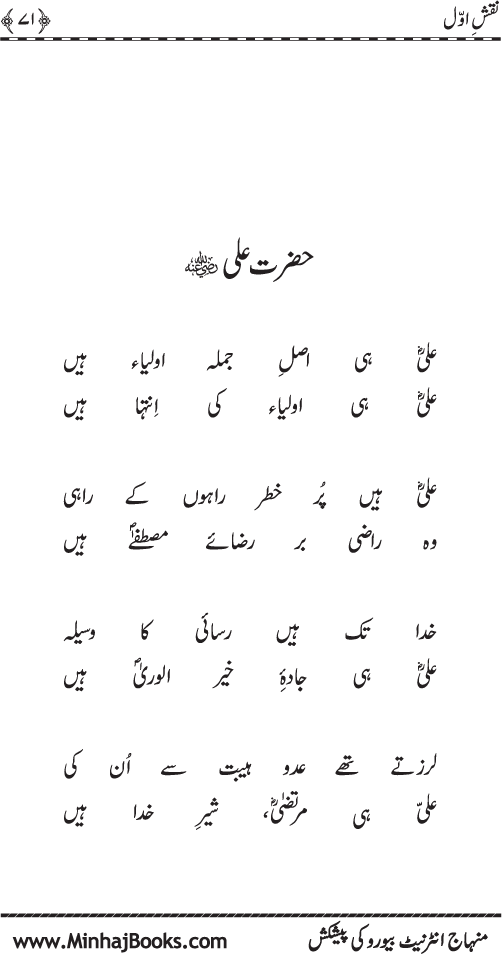 نقشِ اوّل ﴿۷۱﴾
حضرت علی رضی اللہ عنہ
علیؓ ہی اصلِ جملہ اولیاء ہیں
علیؓ ہی اولیاء کی اِنتہا ہیں
علیؓ ہیں پُر خطر راہوں کے راہی
وہ راضی بر رضائے مصطفےٰؐ ہیں
خدا تک ہیں رسائی کا وسیلہ
علیؓ ہی جادۂِ خیر الوریٰؐ ہیں
لرزتے تھے عدو ہیبت سے اُن کی
علیؓ ہی مرتضیٰؓ، شیرِ خدا ہیں
منہاج انٹرنیٹ بیورو کی پیشکش www.MinhajBooks.com